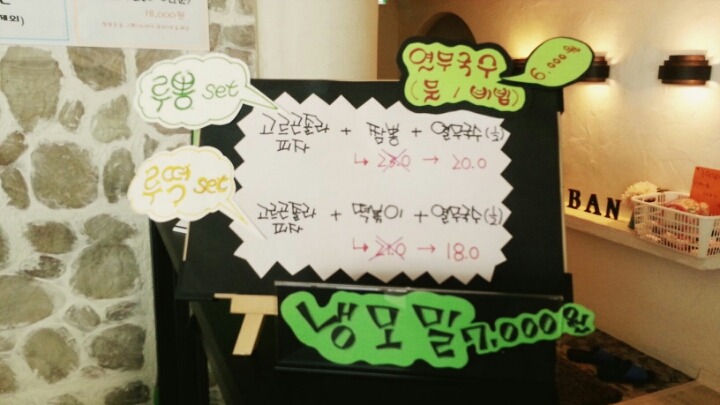 18,000원
열무국수
(물/비빔)
6.000원
루뽕 set
고르곤졸라 + 짬뽕 + 열무국수(小)
피자
↳ 23.0 → 20.0
루떡 set
고르곤졸라 + 떡볶이 + 열무국수(小)
피자
↳ 21.0 → 18.0
BAN
냉모밀 7,000원